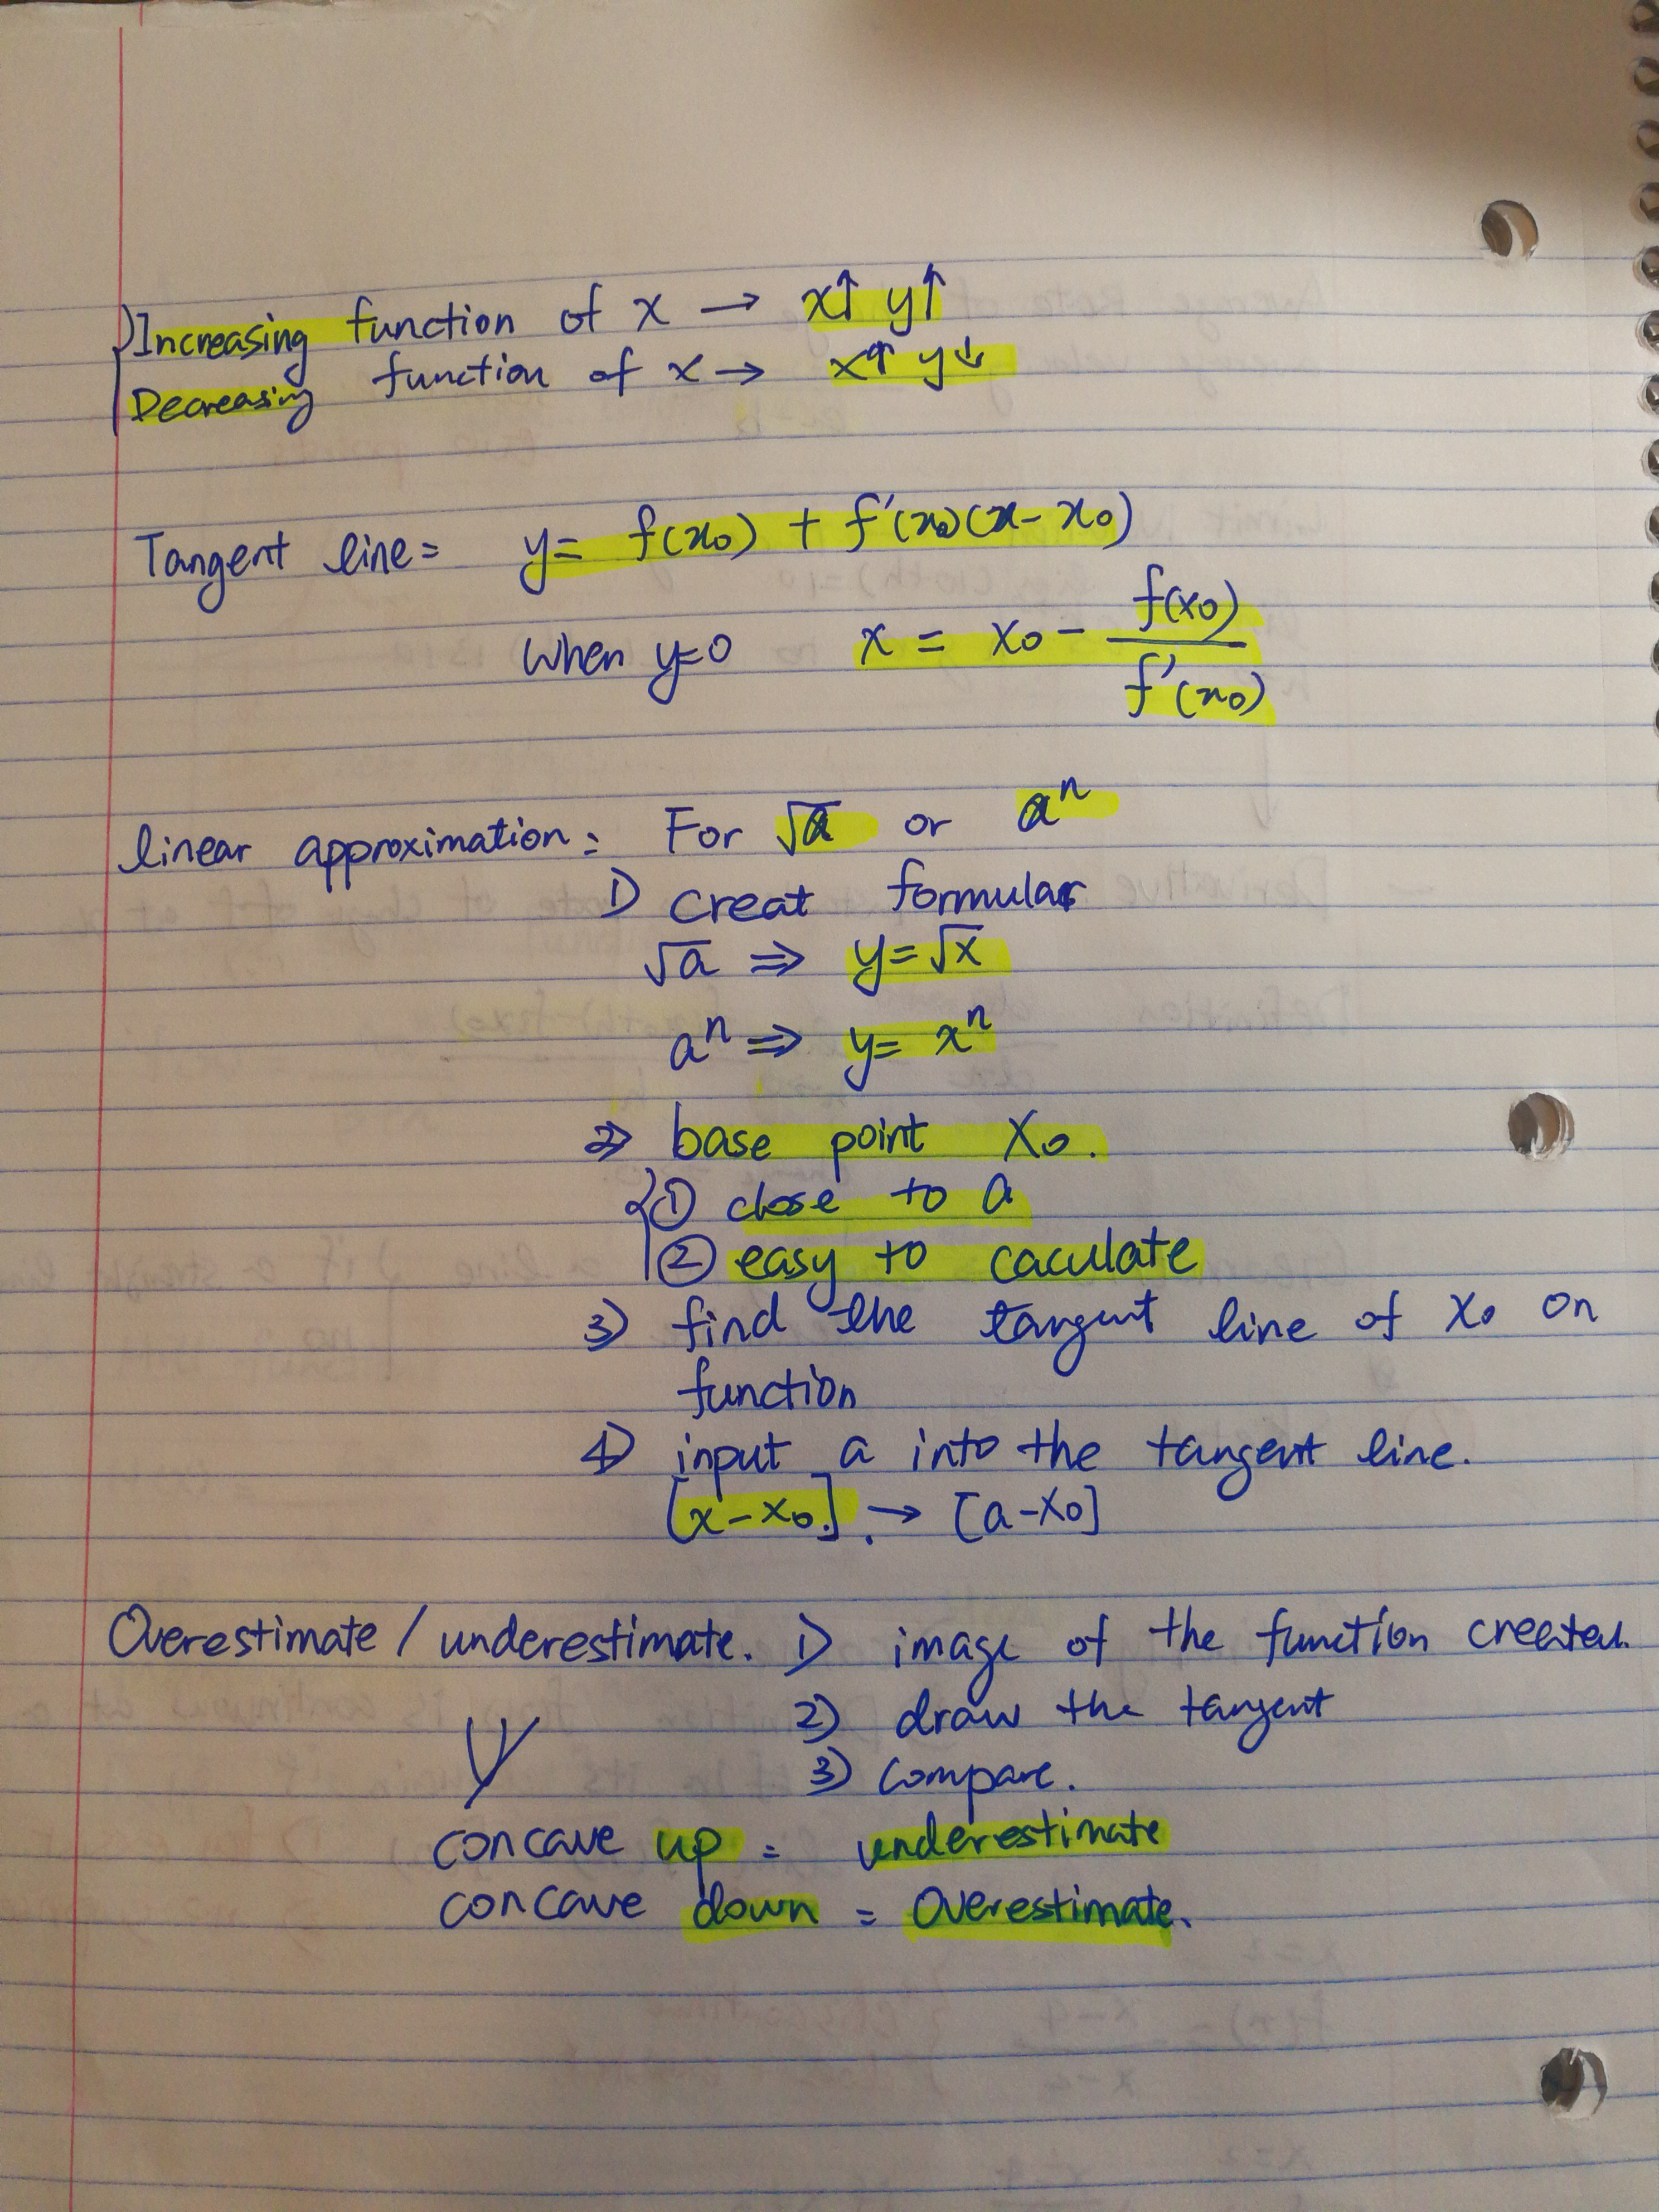 Increasing function of x → x↑ y↑
Decreasing function of x → x↑ y↓
Tangent line = y = f(x₀) + f'(x₀)(x - x₀)
When y=0 x = x₀ - f(x₀) / f'(x₀)
linear approximation: For √a or aⁿ
1) creat formular
√a ⇒ y=√x
aⁿ ⇒ y= xⁿ
2) base point X₀.
① close to a
② easy to caculate
3) find the tangent line of X₀ on
function
4) input a into the tangent line.
[x-x₀]. → [a-X₀]
Overestimate / underestimate. 1) image of the function created.
2) draw the tangent
3) compare.
concave up = underestimate
concave down = Overestimate.